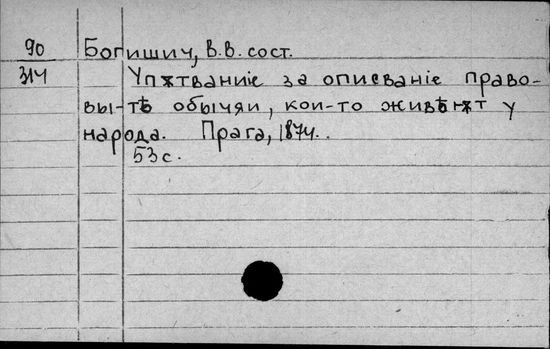 90 Богишич, В.В. сост.
314 Упѫтваниіе за описваніе право-
вы-тѣ обычяи, кои-то живѣѭт у
народа. Прага, 1874.
53 с.